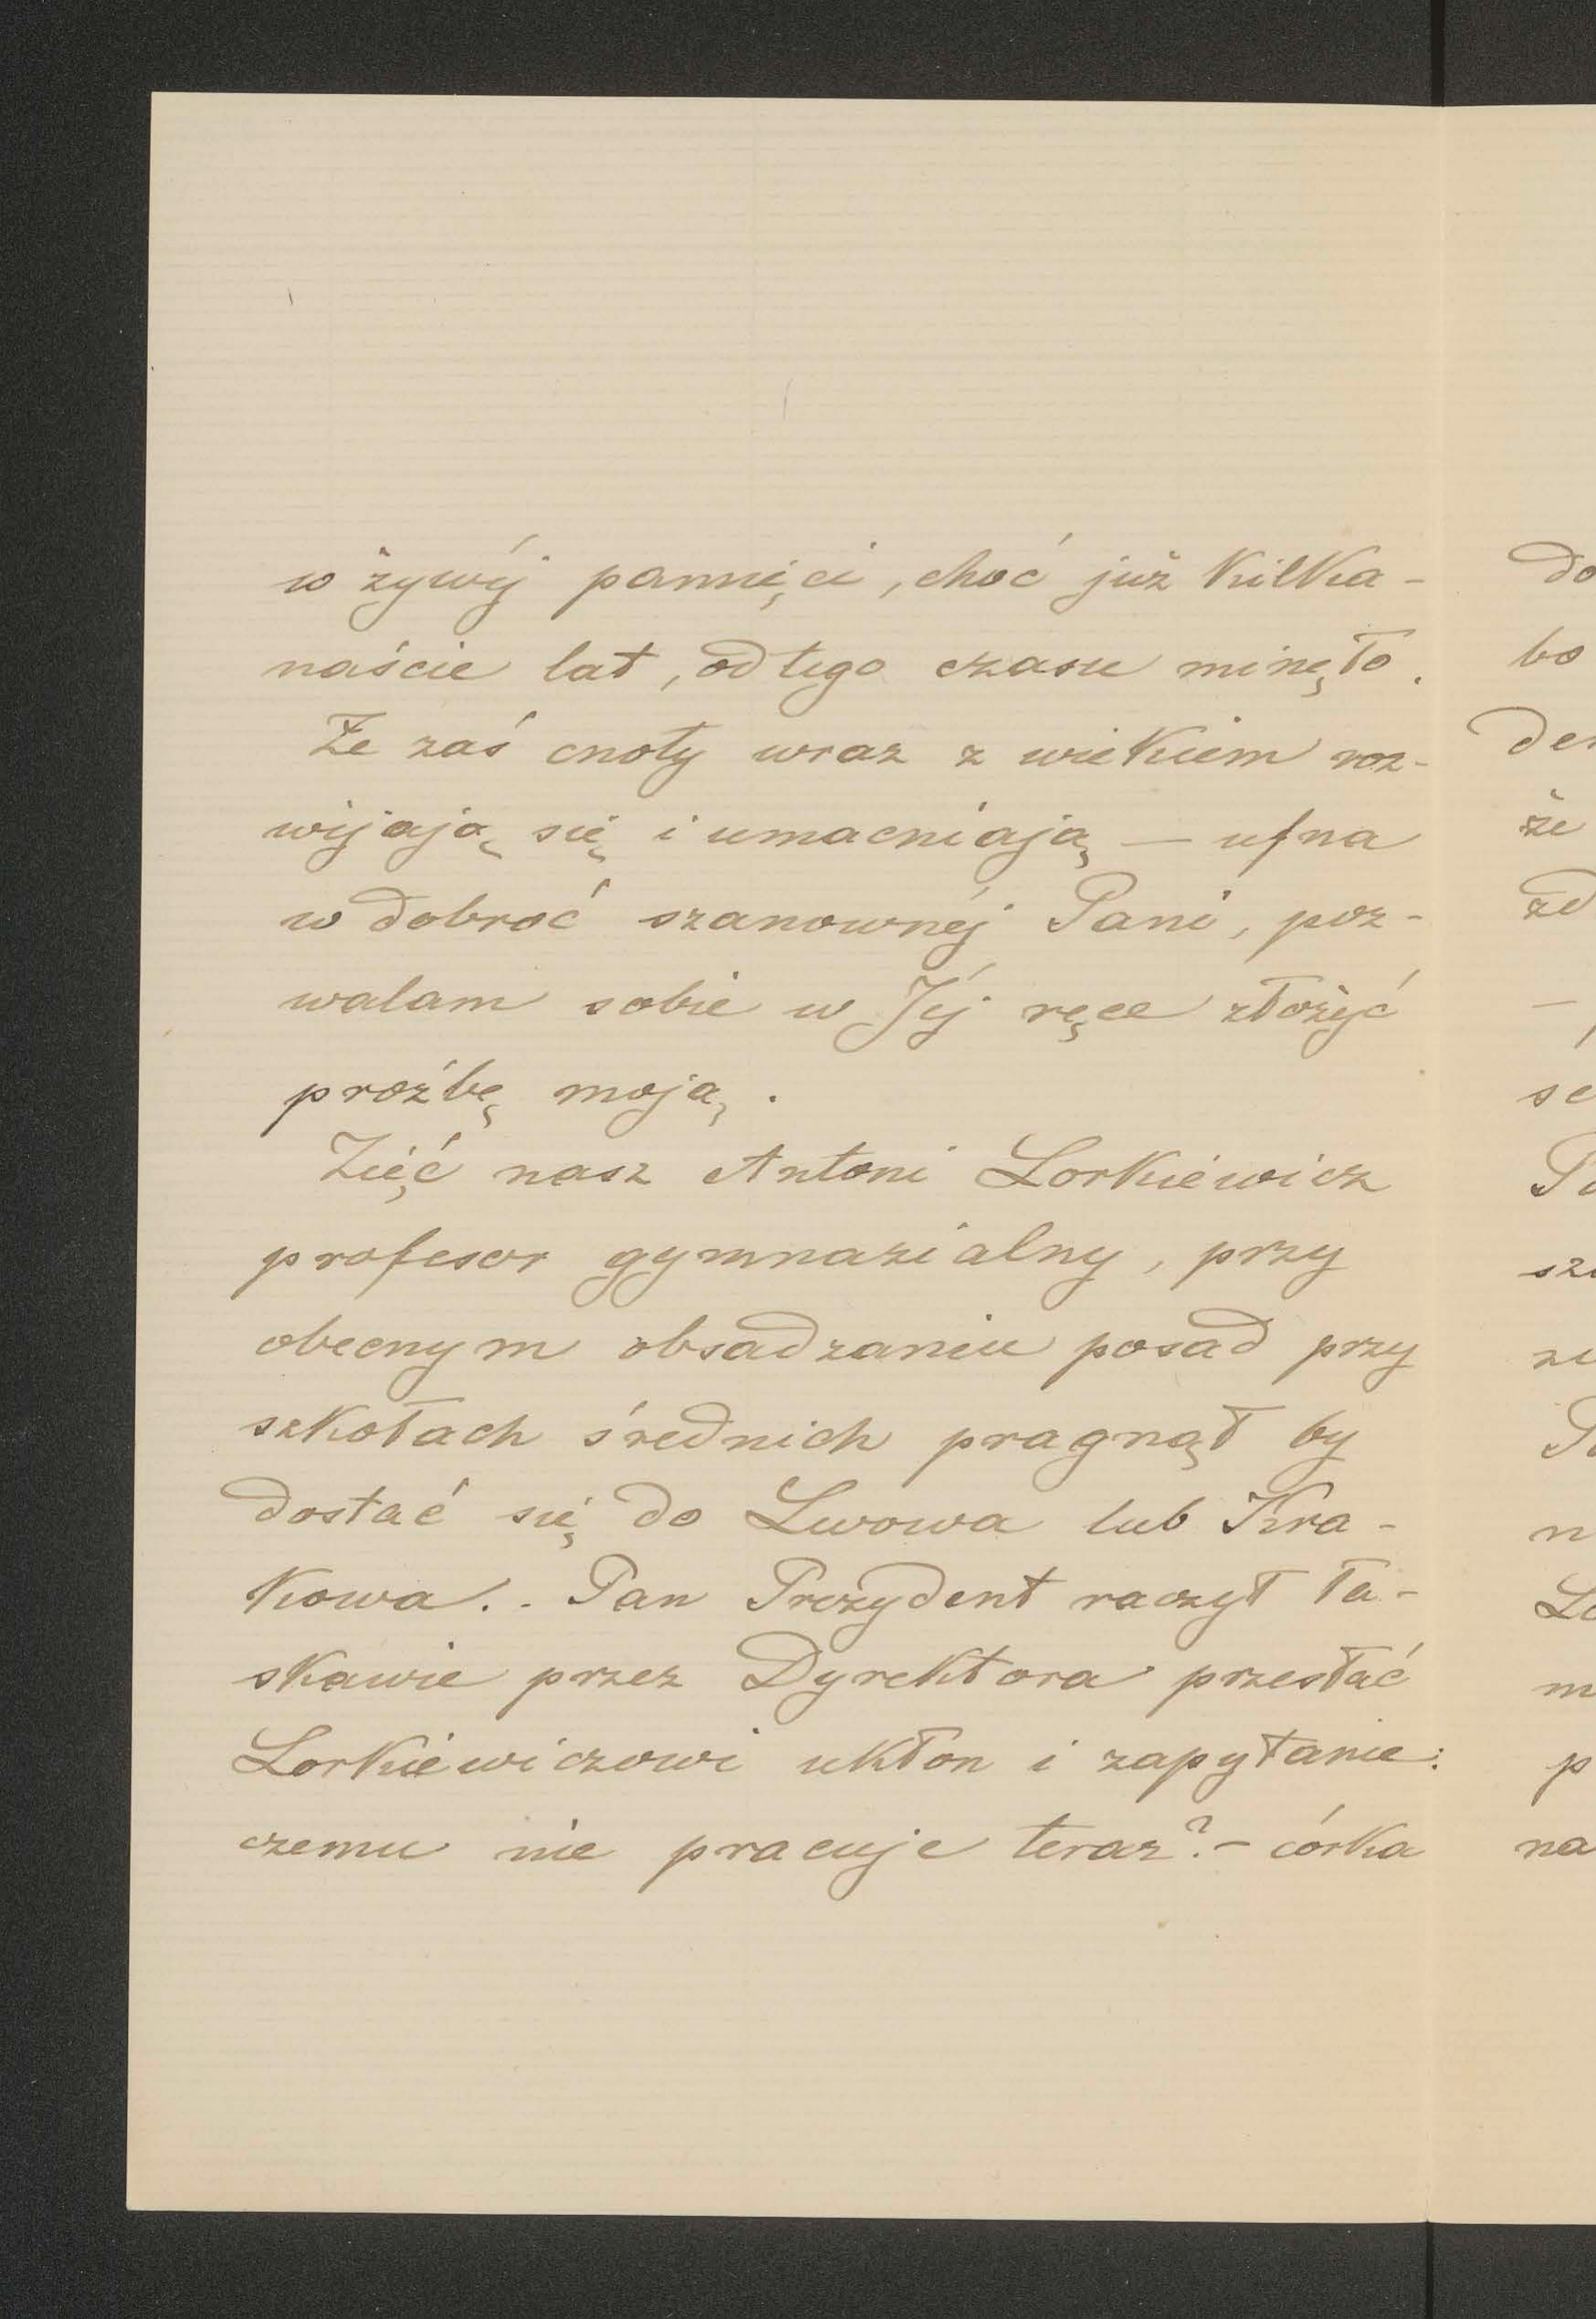 w żywéj pamięci, choć już kilka-
naście lat, od tego czasu minęło.
Że zaś cnoty wraz z wiekiem roz-
wijają się i umacniają — ufna
w dobroć szanownéj Pani, poz-
walam sobie w Jéj ręce złożyć
proźbę moją.
Zięć nasz Antoni Lorkiewicz
profesor gymnazialny, przy
obecnym obsadzaniu posad przy
szkołach średnich pragnął by
dostać się do Lwowa lub Kra-
kowa.. Pan Prezydent raczył ła-
skawie przez Dyrektora przesłać
Lorkiewiczowi ukłon i zapytanie:
czemu nie pracuje teraz? - córka
do
bo
że
—
se
n
m
p
na